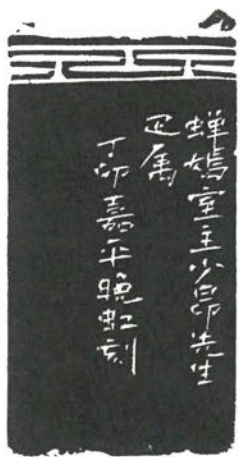 蝉嫣室主少昂先生
疋属
丁卯嘉平晚虹刻